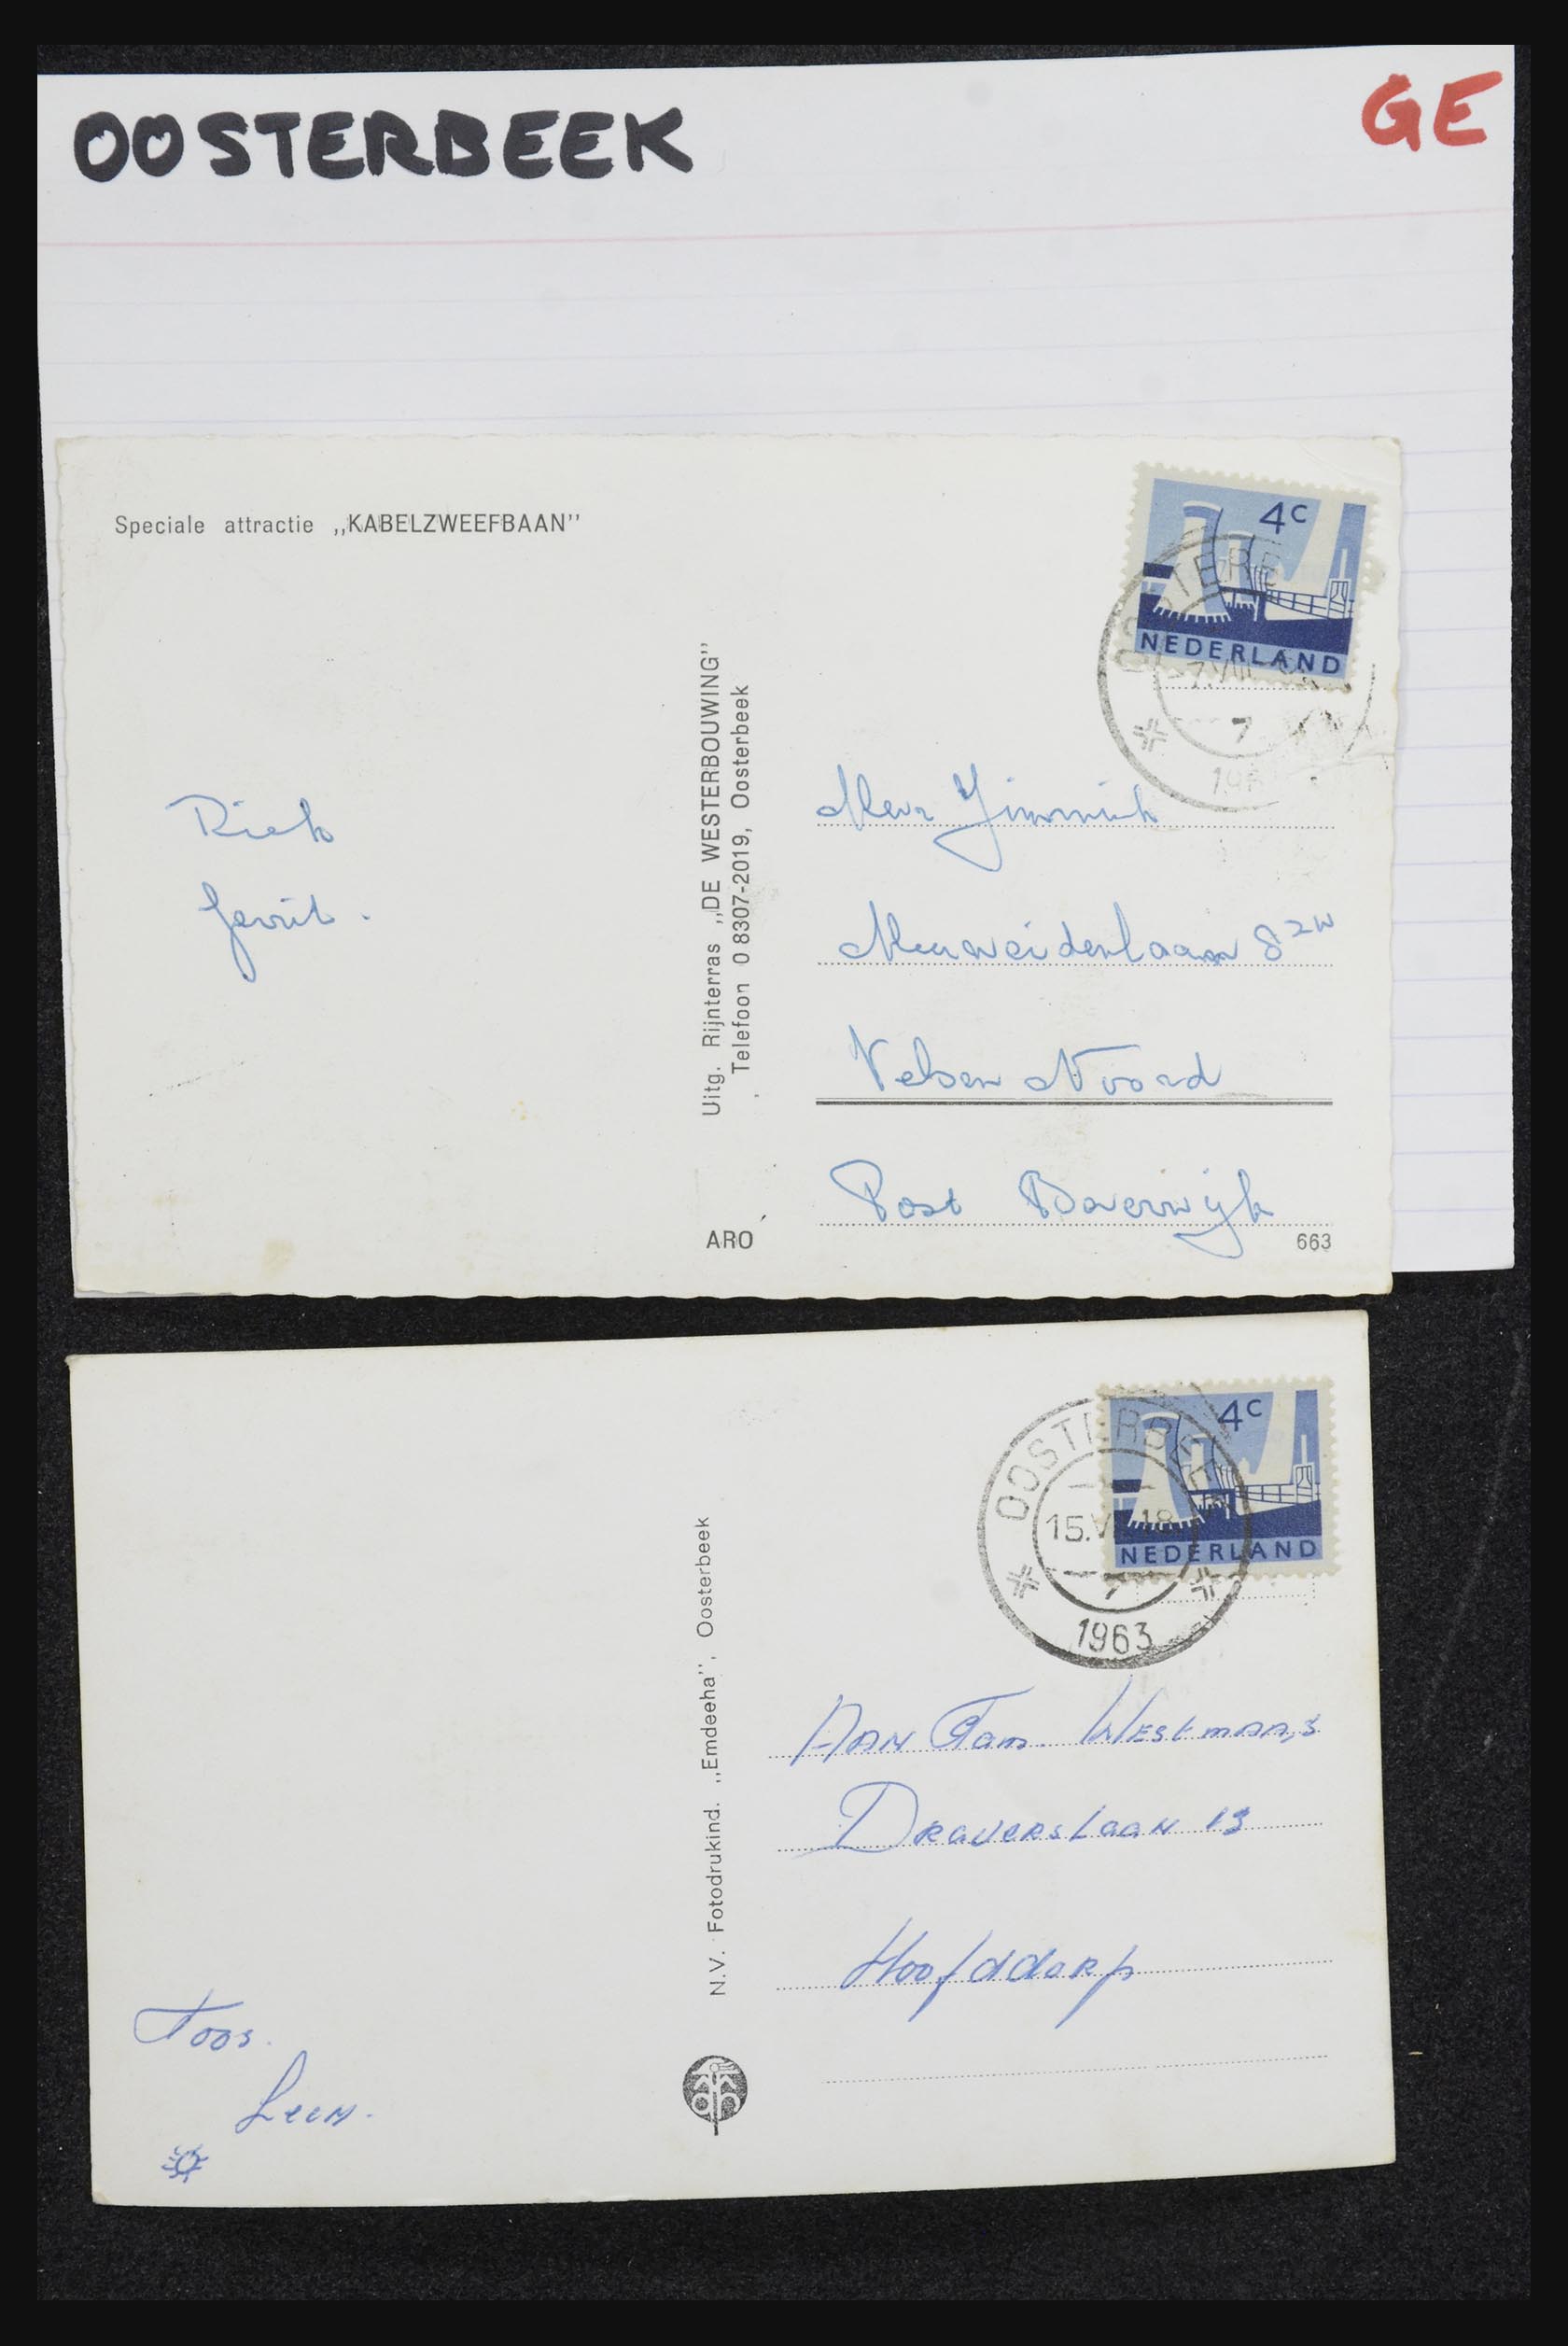 OOSTERBEEK
GE
Speciale attractie ,,KABELZWEEFBAAN''
4c
NEDERLAND
7
Riek
Gerrit.
Uitg. Rijnterras ,,DE WESTERBOUWING''
Telefoon 0 8307-2019, Oosterbeek
Mevr
8 zw
Velsen Noord
Post Beverwijk
ARO
663
4c
NEDERLAND
OOSTERBEEK
1963
N.V. Fotodrukind. ,,Emdeeha'', Oosterbeek
Aan Fam. Westmaas
Draverslaan 13
Hoofddorp
Toos.
Leen.